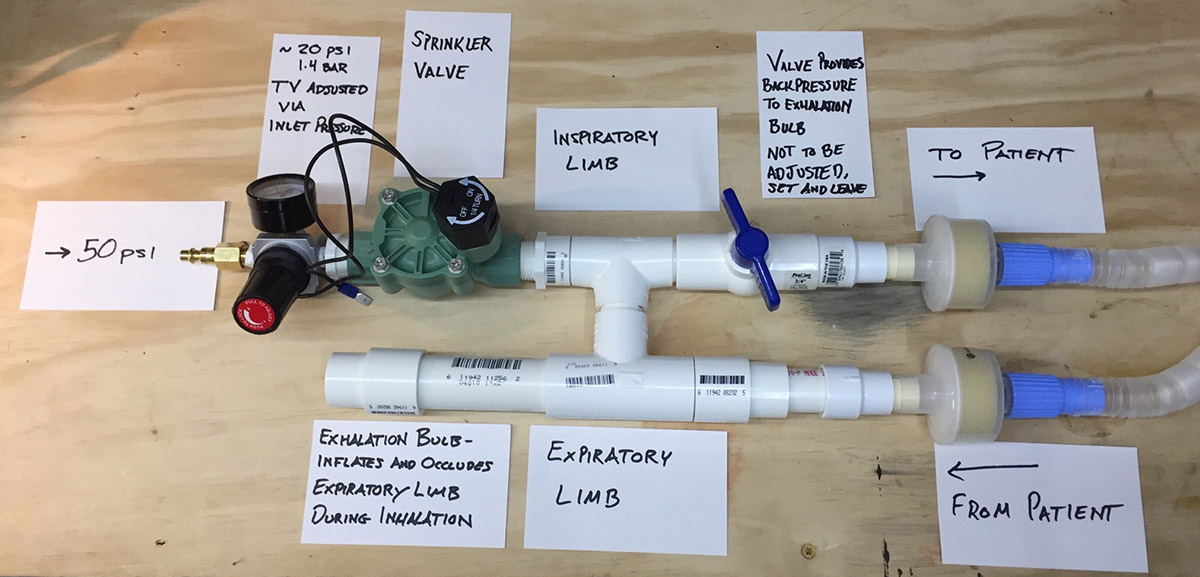 ~ 20 PSI
1.4 BAR
TV ADJUSTED
VIA
INLET PRESSURE
SPRINKLER
VALVE
INSPIRATORY
LIMB
VALVE PROVIDES
BACKPRESSURE
TO EXHALATION
BULB
NOT TO BE
ADJUSTED,
SET AND LEAVE
TO PATIENT
→
→ 50 psi
OFF ON
1/4 TURN
ProLine
3/4"
6 11942 11256 2
6 11942 08202 5
EXHALATION BULB-
INFLATES AND OCCLUDES
EXPIRATORY LIMB
DURING INHALATION
EXPIRATORY
LIMB
←
FROM PATIENT